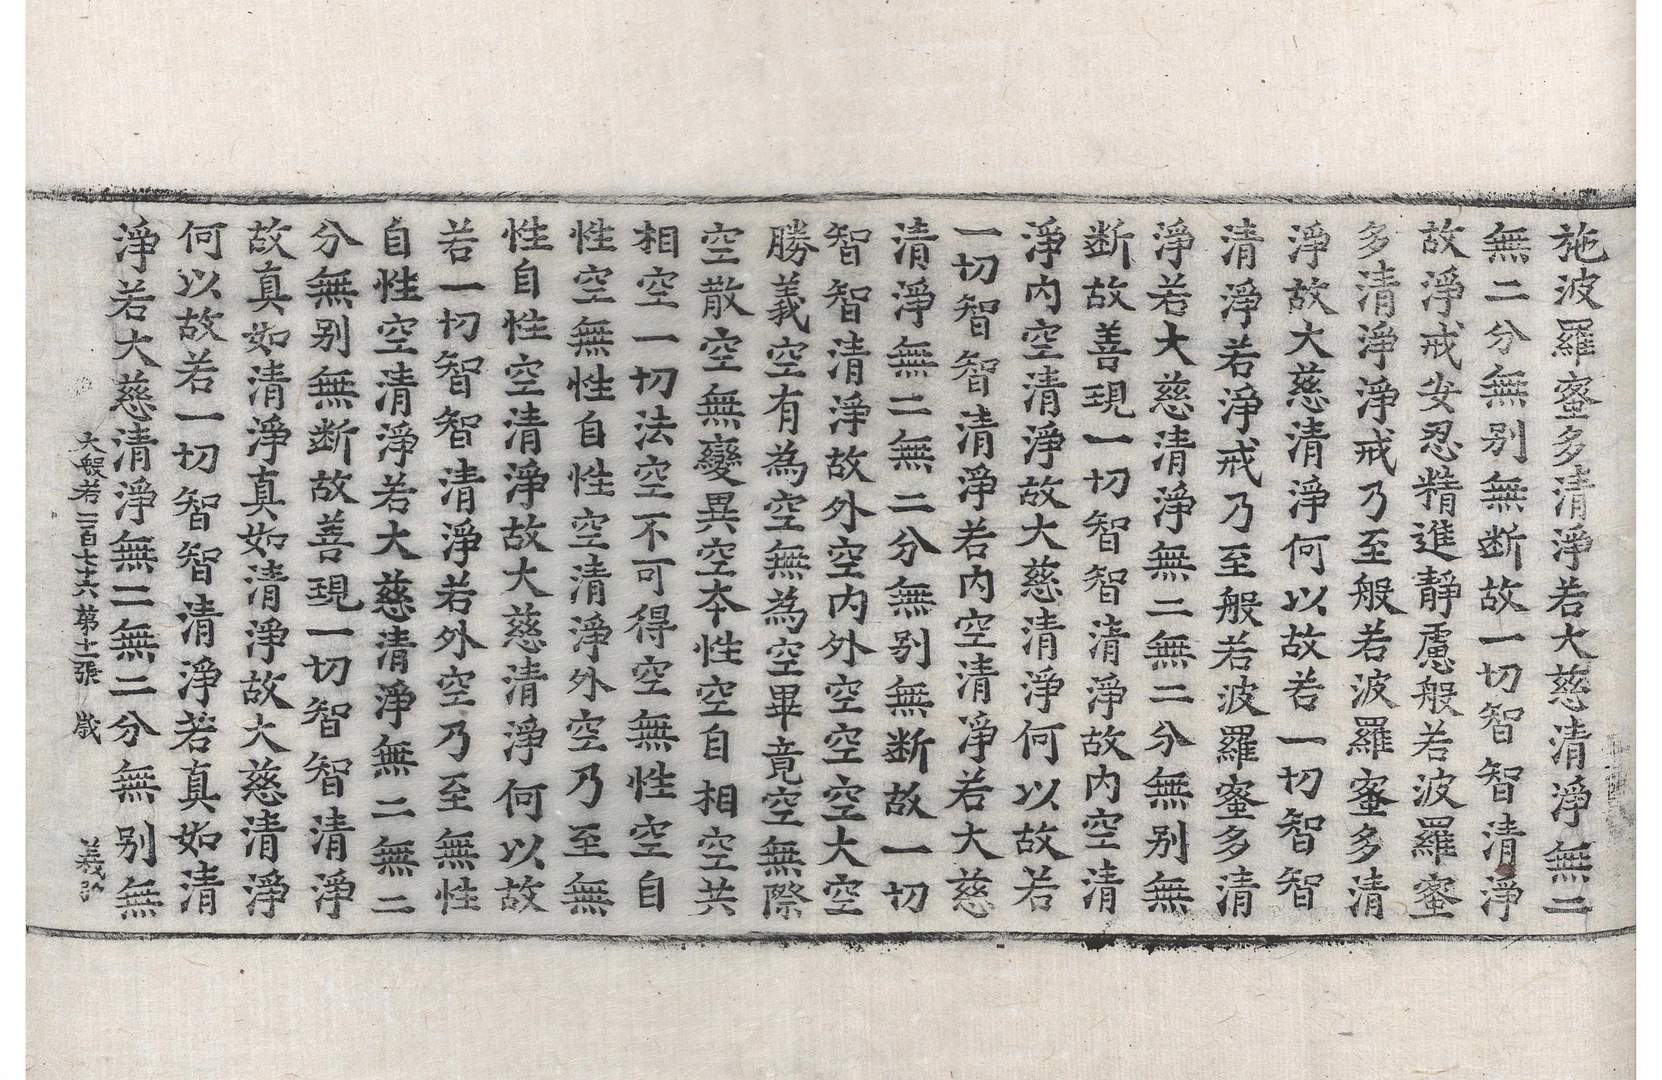 施波羅蜜多清淨若大慈清淨無二
無二分無别無断故一切智智清淨
故淨戒安忍精進靜慮般若波羅蜜
多清淨淨戒乃至般若波羅蜜多清
淨故大慈清淨何以故若一切智智
清淨若淨戒乃至般若波羅蜜多清
淨若大慈清淨無二無二分無别無
断故善現一切智智清淨故内空清
淨内空清淨故大慈清淨何以故若
一切智智清淨若内空清淨若大慈
清淨無二無二分無别無断故一切
智智清淨故外空内外空空空大空
勝義空有為空無為空畢竟空無際
空散空無變異空本性空自相空共
相空一切法空不可得空無性空自
性空無性自性空清淨外空乃至無
性自性空清淨故大慈清淨何以故
若一切智智清淨若外空乃至無性
自性空清淨若大慈清淨無二無二
分無别無断故善現一切智智清淨
故真如清淨真如清淨故大慈清淨
何以故若一切智智清淨若真如清
淨若大慈清淨無二無二分無别無
大般若二百七十六第十二張 歳 義